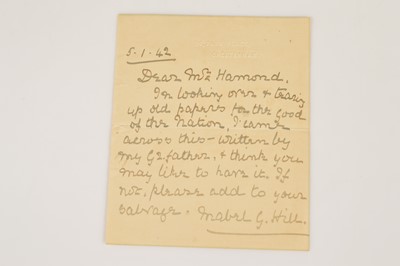 5.1.42
Dear Mrs Hamond,
In looking over & tearing
up old papers for the good
of the Nation, I came
across this - written by
my Gt father, & think you
may like to have it. If
not, please add to your
salvage. Mabel G. Hill.